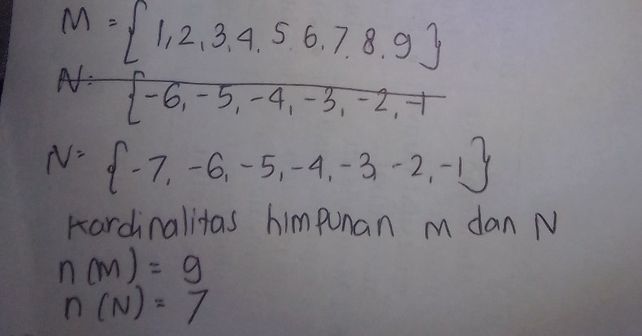 M = {1,2,3,4,5,6,7,8,9}
N = {-6,-5,-4,-3,-2,-1
N = {-7,-6,-5,-4,-3,-2,-1}
Kardinalitas himpunan M dan N
n(M) = 9
n(N) = 7